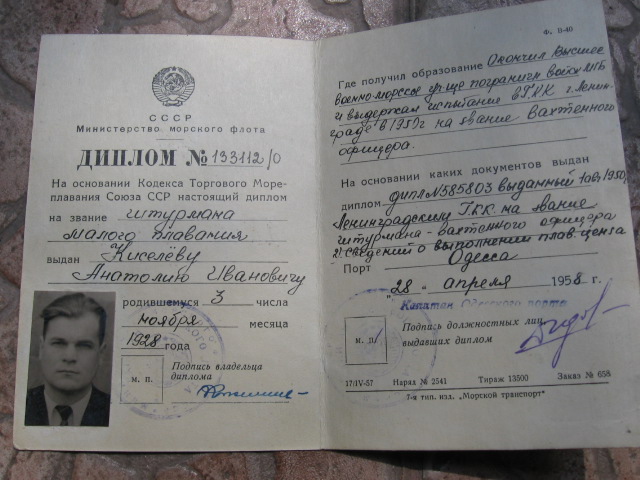 СССР
Министерство морского флота
ДИПЛОМ № 133112/0
На основании Кодекса Торгового Море-
плавания Союза ССР настоящий диплом
на звание штурмана
малого плавания
выдан Киселёву
Анатолию Ивановичу
родившемуся 3 числа
ноября месяца
1928 года
Подпись владельца
диплома
м. п.
Ф. В-40
Где получил образование Окончил Высшее
военно-морское уч-ще погранич. войск МГБ
и выдержал испытание в ГКК г. Ленин-
граде в 1950г на звание вахтенного
офицера.
На основании каких документов выдан
диплом дипл №585803 выданный 1950г
Ленинградским ГКК на звание
штурмана-вахтенного офицера
2) сведений о выполнении плав. ценза
Порт Одесса
"28" апреля 1958 г.
Капитан Одесского порта
Подпись должностных лиц,
выдавших диплом
м. п.
17/IV-57 Наряд № 2541 Тираж 13500 Заказ № 658
7-я тип. изд. „Морской транспорт"